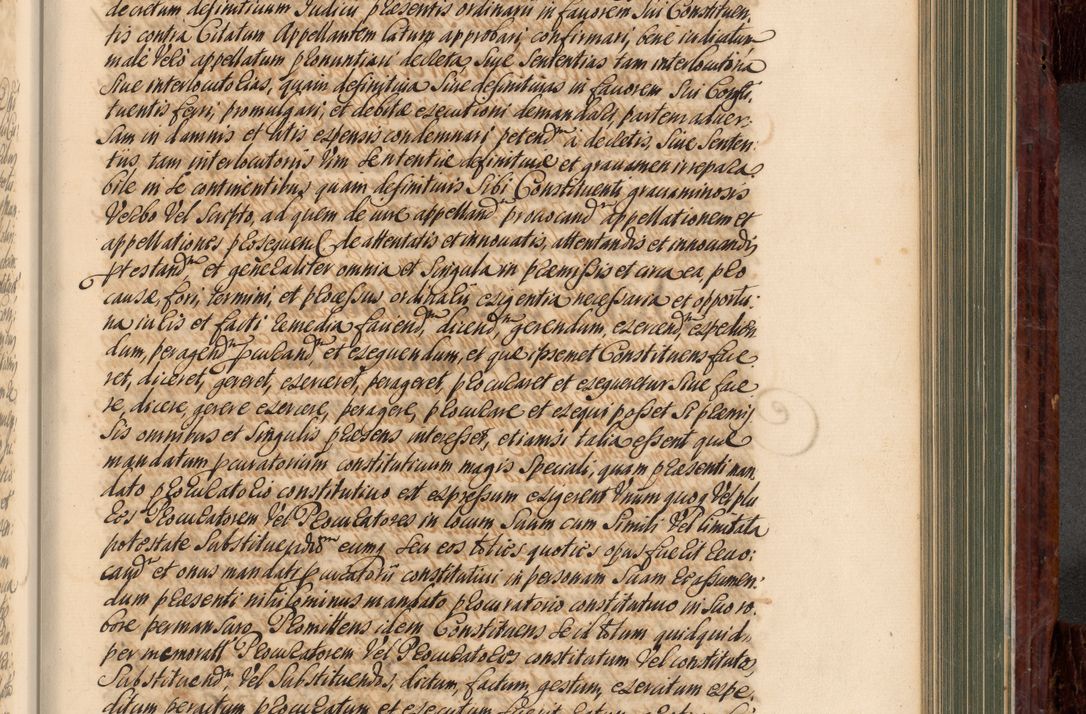 decretum definitivum Judicii praesentis ordinarii in favorem Sui Constituen
tis contra Citatum Appellantem latum approbari, confirmari, bene iudicatum
male vero appellatum pronuntiari decreta Sive Sententias tam interlocutoria
Sive interlocutorias, quam definitiva Sive definitivas in favorem Sui Consti
tuentis ferri, promulgari, et debitae executioni demandari, partem adver:
Sam in damnis et litis expensis condemnari petend̄m à decretis, Sive Senten:
tiis tam interlocutoriis vim Sententiae definitivae et gravamen irrepara
bile in Se continentibus quam definitivis Sibi Constituenti gravaminosis
Verbo Vel Scripto, ad quem de iure appelland̄m provocand̄m appellationem et
appellationes prosequend. de attentatis et innovatis, attentandis et innovandis
ptestand̄m et generaliter omnia et Singula in praemissis et circa ea, pro
causae, fori, termini, et processus ordinarii exigentia necessaria et opportu:
na iuris et facti remedia faciend̄m, dicend̄m, gerendum, exercend̄m, expedien
dum, peragend̄m pcurand̄m et exequendum, et quae ipsemet Constituens face
ret, diceret, gereret, exerceret, perageret, procuraret et exequeretur Sive face
re, dicere, gerere exercere, peragere, procurare et exequi posset Si praemis
Sis omnibus et Singulis praesens interesset, etiamsi talia essent quae
mandatum pcuratorium constitutivum magis Speciali, quam praesenti man
dato procuratorio constitutivo est expressum exigerent Unum quoq Vel plu
res Procuratorem Vel Procuratores in locum Suum cum Simili Vel limitata
potestate Substituend̄m eumq Seu eos toties quoties opus fuerit revo:
cand̄m et onus mandati pcuratorii constitutivi in personam Suam reassumen:
dum praesenti nihilominus mandato procuratorio constitutivo in Suo ro:
bore permansuro, Promittens idem Constituens Se id totum quidquid
per memorat Procuratorem Vel Procuratores constitutum Vel constitutos,
Substituend̄m, Vel Substituendos, dictum, factum, gestum, exercitum expe:
ditum peractum procuratum et executum fuerit